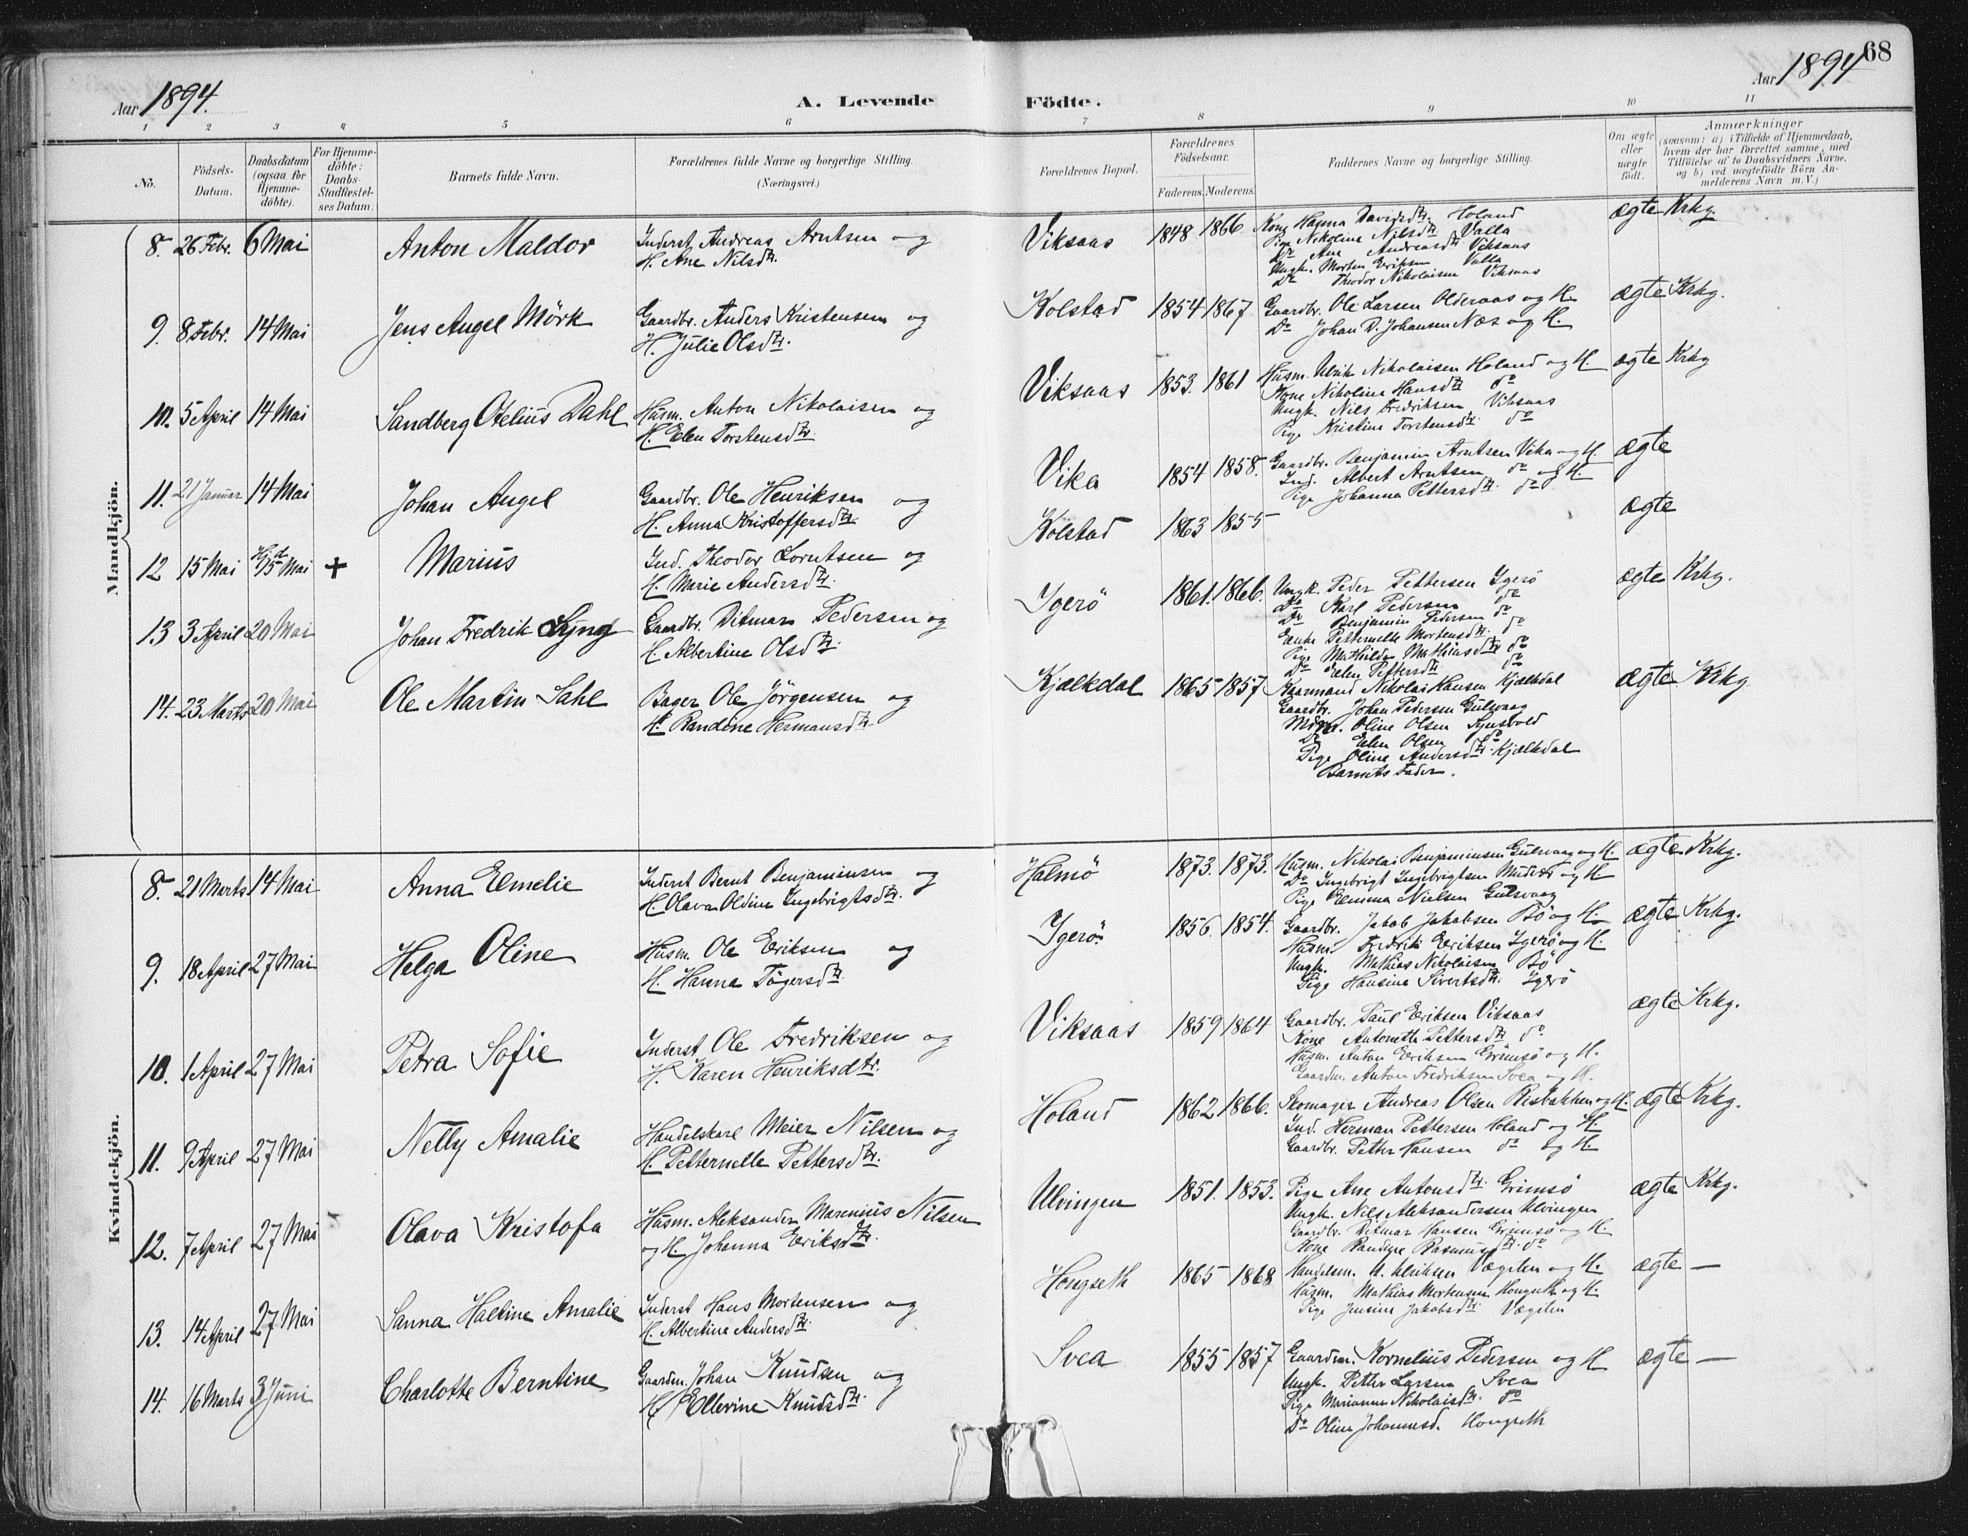 68
Aar 1894.
A. Levende Födte.
Aar 1894
1 2 3 4 5 6 7 8 9 10 11
No.
Födsels-Datum.
Daabsdatum (ogsaa for Hjemme-döbte).
For Hjemme-döbte: Daabs-Stadfæstel-ses Datum.
Barnets fulde Navn.
Forældrenes fulde Navne og borgerlige Stilling.
(Næringsvei.)
Forældrenes Bopæl.
Forældrenes Födselsaar.
Faderens. Moderens.
Faddernes Navne og borgerlige Stilling.
Om ægte eller uægte födt.
Anmærkninger
(saasom: a) i Tilfælde af Hjemmedaab, hvem der har forrettet samme, med Tilföielse af to Daabsvidners Navne, og b) ved uægtefödte Börn An-melderens Navn m. V.)
Mandkjön.
8. 26 Febr. 6 Mai Anton Maldor Inderst Andreas Arntsen og Viksaas 1848 1866 Kone Hagma Davidsdtr. Holand ægte Krkg.
H. Ane Nilsdtr. Pige Nikoline Nilsdtr Valla
Do Ane Andreasdtr Viksaas
Ungk. Morten Eriksen Valla
Do Theodor Nikolaisen Viksaas
9. 8 Febr. 14 Mai Jens Angel Mörk Gaardbr. Anders Kristensen og Kolstad 1854 1867 Gaardbr. Ole Larsen Olderaas og H. ægte Krkg.
H. Julie Olsdtr. Do Johan D. Johansen Næs og H.
10. 5 April 14 Mai Sandberg Otelius Dahl Husm. Anton Nikolaisen og Viksaas 1853. 1861 Husm. Ulrik Nikolaisen Holand og H. ægte Krkg
H. Elen Torstensdtr. Kone Nikoline Hansdtr do
Ungk. Nils Fredriksen Viksaas
Pige Kristine Torstensdtr. do
11. 21 Januar 14 Mai Johan Angel Gaardbr. Ole Henriksen og Vika 1854 1858. Gaardbr. Benjamin Arntsen Vika og H. ægte
H. Anna Kristoffersdtr. Ind. Albert Arntsen do og H.
Pige Johanna Pettersdtr. do
12 15 Mai Hjd 15 Mai + Marius Ind. Theodor Lorntsen og Kolstad 1863 1855 ægte
H. Marie Andersdtr.
13 3 April 20 Mai Johan Fredrik Lyng Gaardbr. Ditmar Pedersen og Ygerö 1861. 1866. Ungk. Peder Pettersen Ygerö ægte Krkg.
H. Albertine Olsdtr. Do Karl Pedersen do
Do Benjamin Pedersen do
Enke Petternelle Mortensdtr. do
Pige Mathilde Mathiasdtr do
Do Elen Pettersdtr do
14. 23 Marts 20 Mai Ole Martin Dahl Bager Ole Jörgensen og Kjælkdal 1865 1857 Kaarmand Nikolai Hansen Kjælkdal ægte Krkg
H. Randine Hermansdtr. Gaardbr. Johan Pedersen Gulsvaag
Oline Olsen
Do Elen Olsen do
Pige Oline Andersdtr. Kjælkdal
Barnets Fader.
Kvindekjön.
8. 21 Marts 14 Mai Anna Elmelie Inderst Bernt Benjaminsen og Halmö 1873. 1873. Husm. Nikolai Benjaminsen Gulsvaag og H. ægte Krkg.
H. Olava Oldine Ingebrigtsdtr. Do Ingebrigt Ingebrigtsen og H
Pige Emma Nielsen Gulsvaag
9. 18 April 27 Mai Helga Oline Husm. Ole Eriksen og Ygerö 1856. 1854. Gaardbr. Jakob Jakobsen Bö og H. ægte Krkg.
H. Hanna Tögersdtr. Husm. Fredrik Eriksen Ygerö og H.
Ungk. Mathias Nikolaisen Bö
Pige Hansine Sivertsdtr. Ygerö
10. 1 April 27 Mai Petra Sofie Inderst Ole Fredriksen og Viksaas 1859 1864 Gaardbr. Paul Eriksen Viksaas ægte Krkg.
H. Karen Henriksdtr. Kone Antonette Pettersdtr do
Husm. Anton Eriksen Grimsö og H.
Gaardm. Anton Fredriksen Svea og H.
11. 9 April 27 Mai Nelly Amalie Handelskarl Meier Nilsen og Holand 1862 1866. Skomager Andreas Olsen Risbakken og H. ægte Krkg.
H. Petternelle Pettersdtr. Ind. Herman Pettersen Holand og H
Gaardbr. Petter Hansen do og H.
12. 7 April 27 Mai Olava Kristofa Husm. Aleksander Marenius Nilsen Ulvingen 1851. 1853. Pige Ane Antonsdtr. Grimsö ægte Krkg.
og H. Johanna Eriksdtr. Ungk. Nils Aleksandersen Ulvingen
Gaardbr. Ditmar Hansen Grimsö og H.
Kone Randine Rasmusdtr. do
13. 14 April 27 Mai Sanna Haltine Amalie Inderst Hans Mortensen og Hongseth 1865 1868 Handelsm. U. Ulriksen Vægelen og H. ægte —
H. Albertine Andersdtr. Husm. Mathias Mortensen Hongseth og H.
Pige Jensine Jakobsdtr. Vægelen
14. 16 Marts 3 Juni Charlotte Berntine Gaardm. Johan Knudsen og Svea 1855 1857 Gaardm. Kornelius Pedersen og H ægte —
H. Ellevine Knudsdtr. Ungk. Petter Larsen Svea
Pige Marianne Nikolaisdtr. do
Do Oline Johannesd. Hongseth